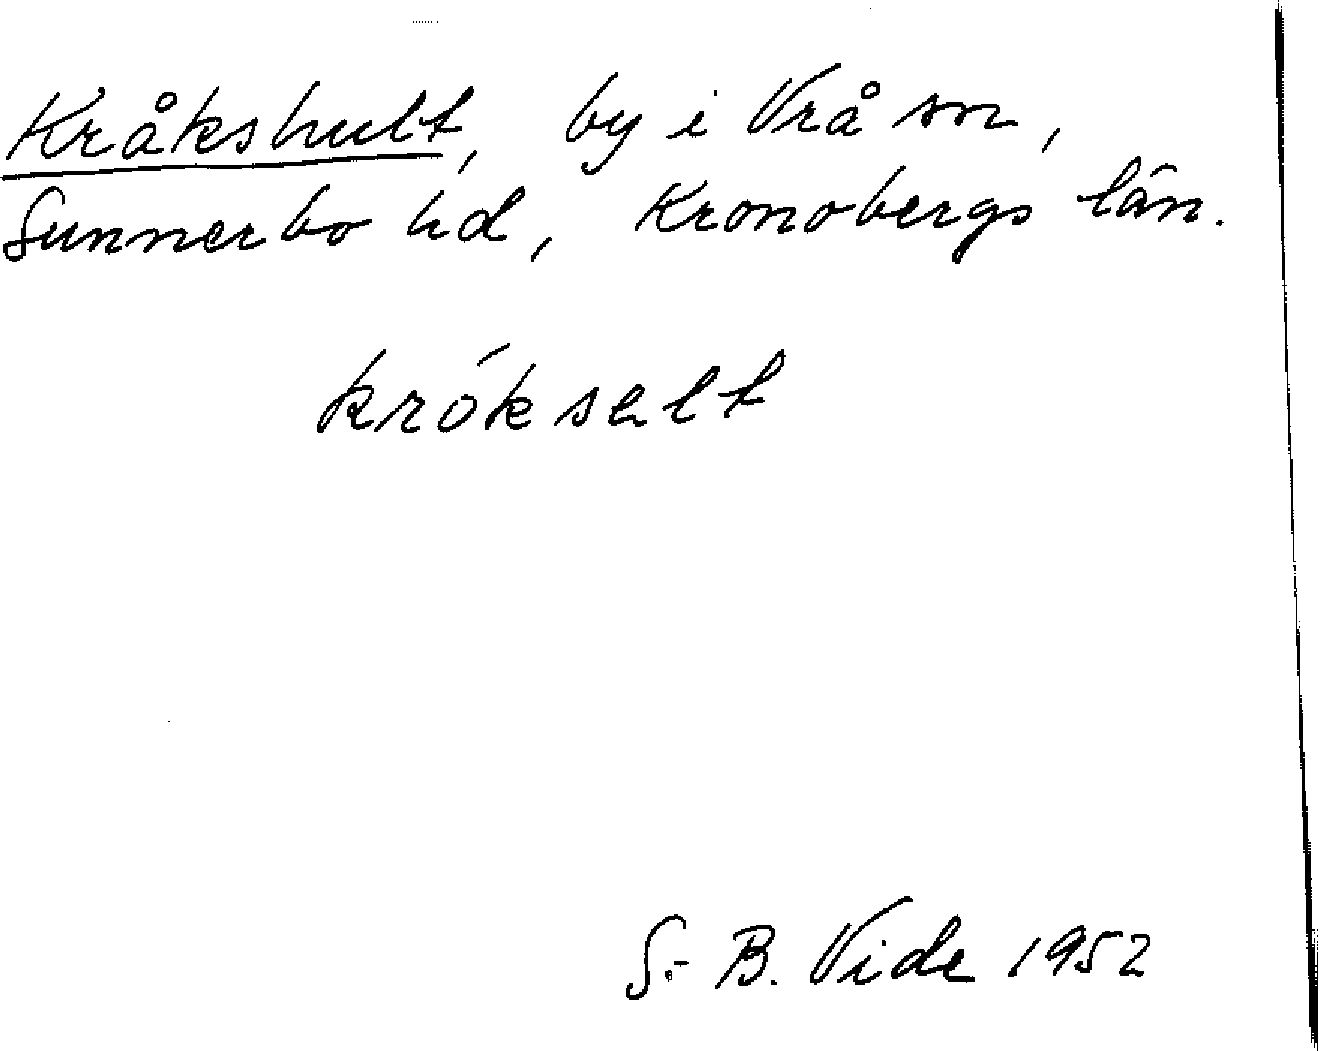 Kråkshult, by i Vrå sn,
Sunnerbo hd, Kronobergs län.
króksalt
S.-B. Vide 1952